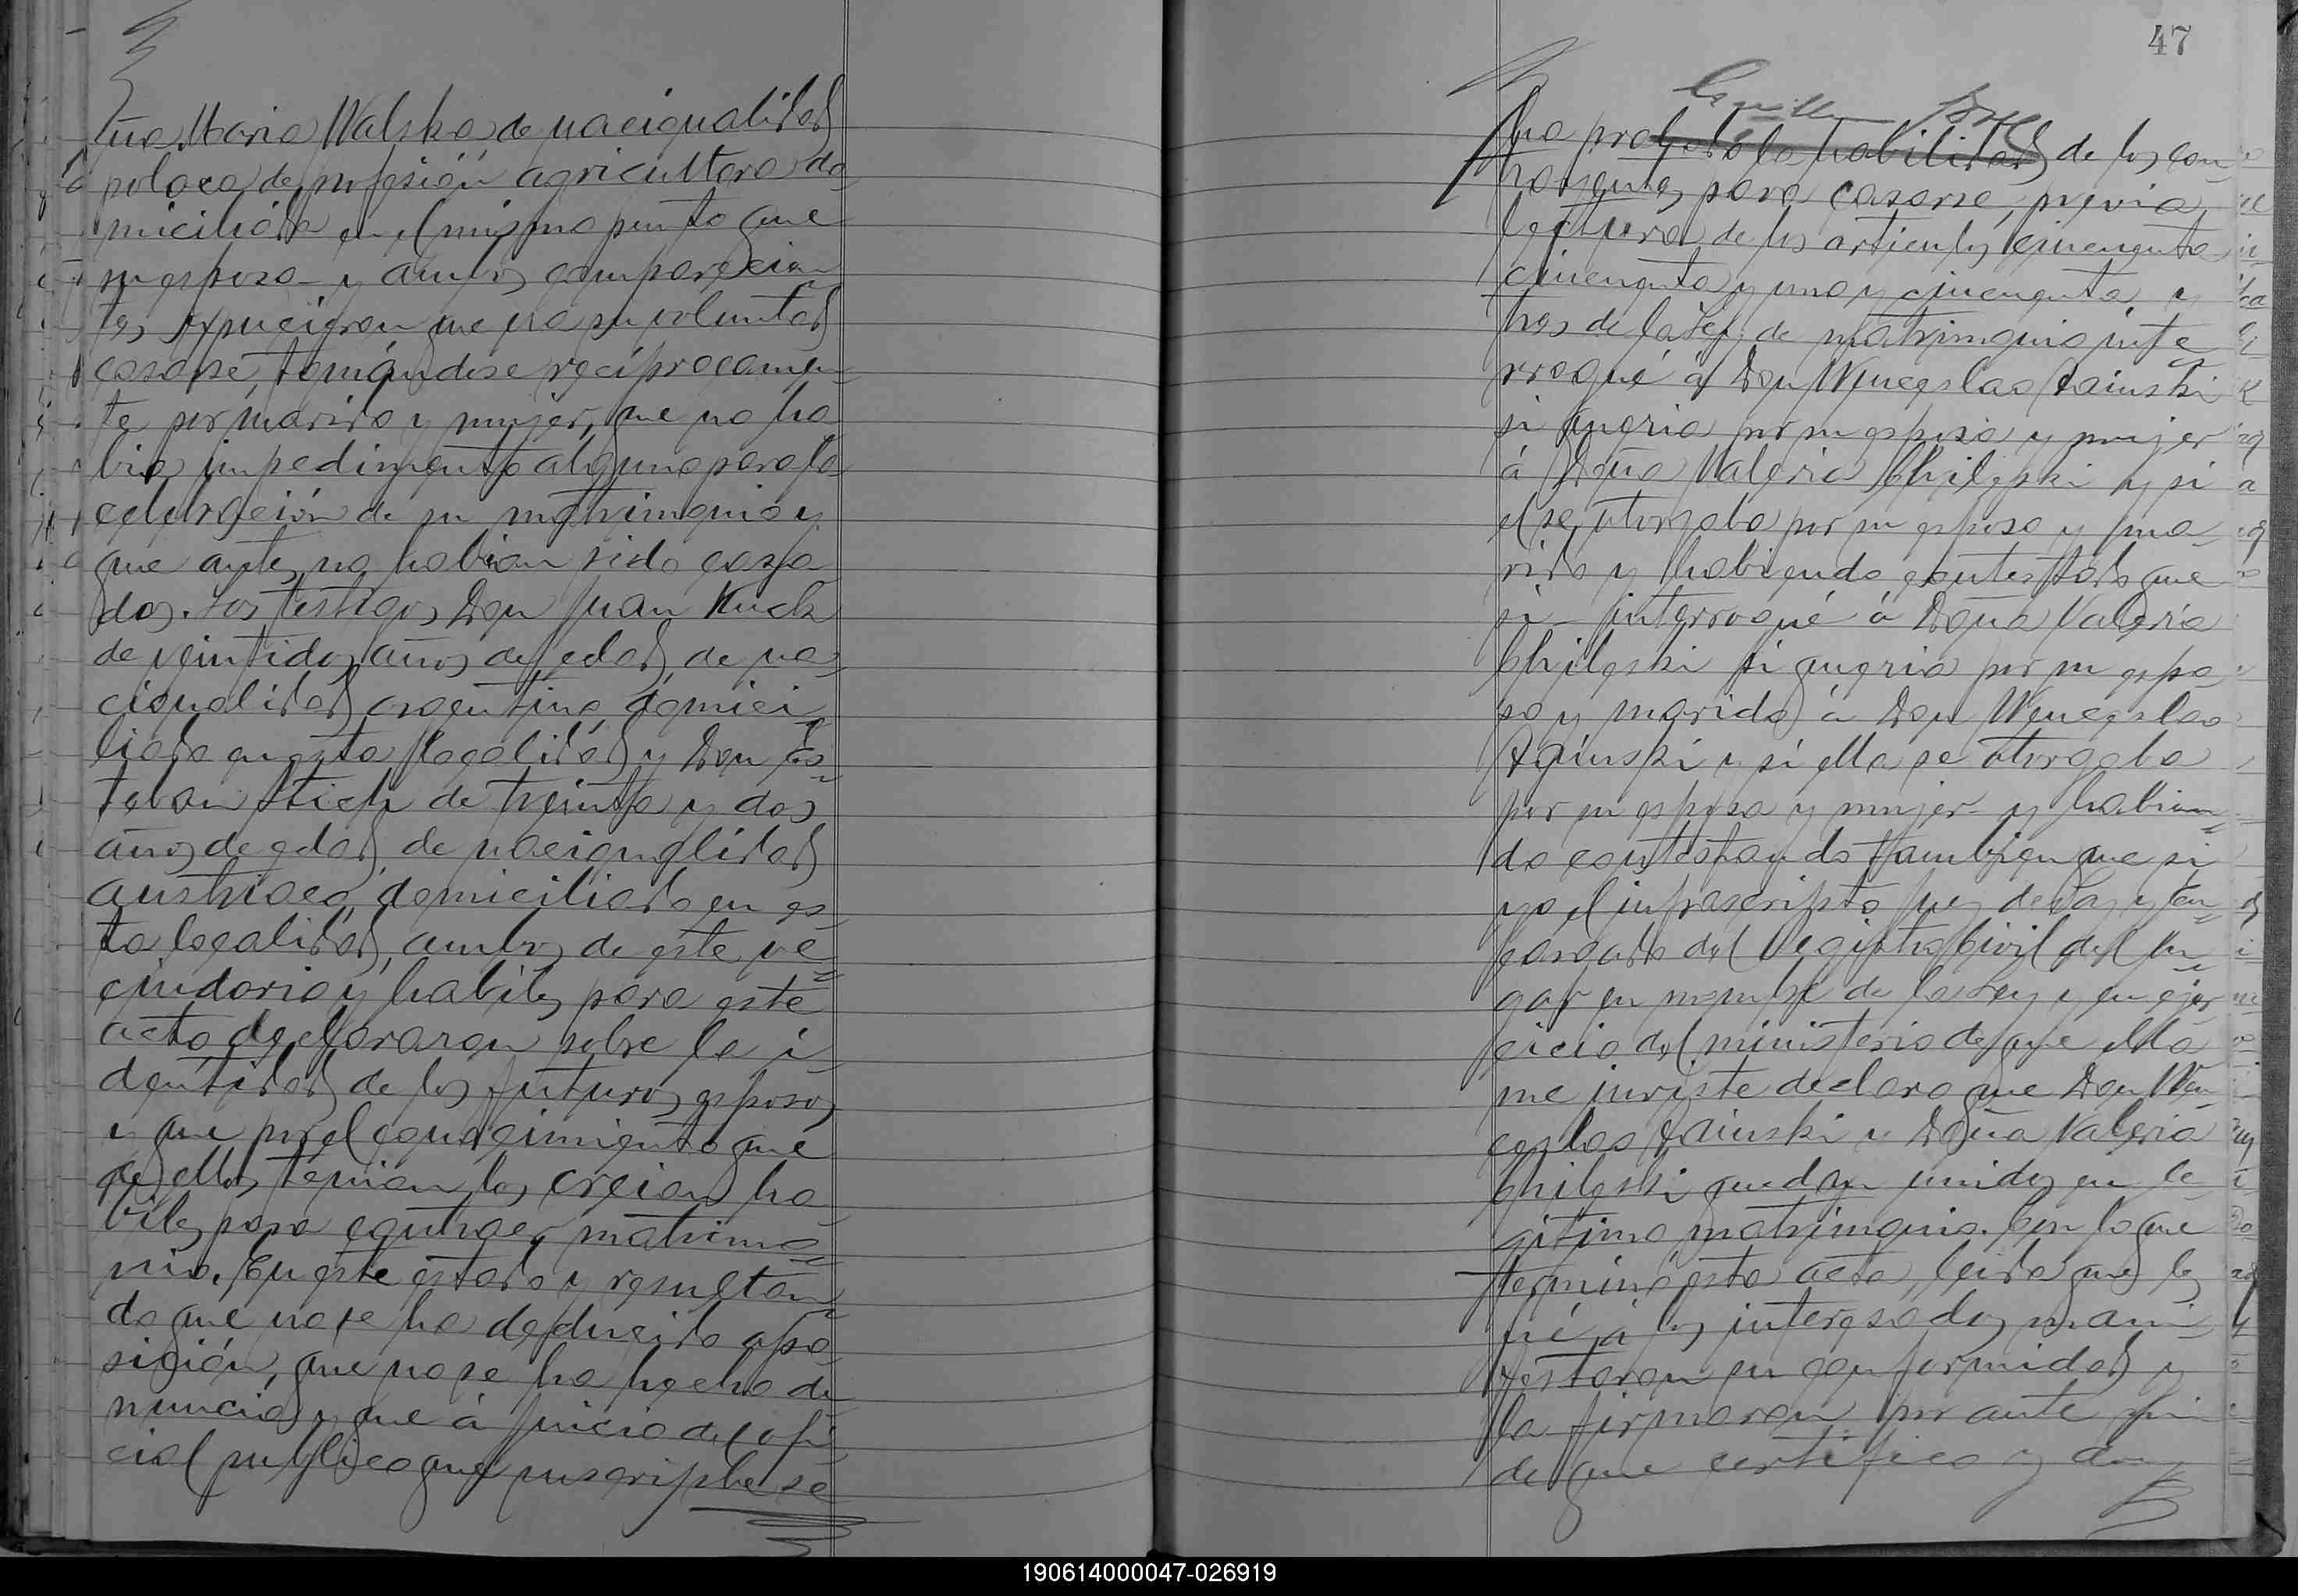 ña Maria Walska, de nacionalidad
polaca, de profesión agricultora do-
miciliada en el mismo punto que
su esposo y ambos comparecien
tes expucieron que era su voluntad
casarse, tomándose reciprocamen-
te por marido y mujer, que no ha
bia impedimento alguno para la
celebración de su matrimonio y
que antes no habian sido casa-
dos. Los testigos Don Juan Kuch
de veintidos años de edad, de na-
cionalidad argentina, domici-
liado en esta localidad y Don Es-
teban Stich de treinta y dos
años de edad, de nacionalidad
austriaca, domiciliado en es-
ta localidad, ambos de este ve-
cindario y habiles para este
acto, declararon sobre la i-
dentidad de los futuros esposos
y que por el conocimiento que
de ellos tenian los creian ha-
biles para contraer matrimo-
nio. En este estado y resultan-
do que no se ha deducido opo-
sición, que no se ha hecho de
nuncia y que á juicio del ofi-
cial publico que suscriphe se
47
ha probado la habilidad de los con-
trayentes para casarse, previa
lectura de los articulos cincuenta
cincuenta y uno y cincuenta y
tres de la Ley de matrimonio inte-
rrogué á Don Wenceslao
si queria por su esposa y mujer
á Doña Valeria Chileski y si
el se otorgaba por su esposo y ma-
rido y habiendo contestado que
si interrogué á Doña Valeria
Chileski si queria por su espo-
so y marido á Don Wenceslao
y si ella se otorgaba
por su esposa y mujer y habien-
do contestando tambien que si
yo el infrascripto Juez de Paz y En-
cargado del Registro Civil del lu-
gar en nombre de la Ley y en ejer
cicio del ministerio de que ella
me inviste declaro que Don Wen
ceslao y Doña Valeria
Chileski quedan unidos en le-
gitimo matrimonio. Con lo que
terminó esta acta, leida que les
fué á los interesados, mani-
festaron su conformidad y
la firmaron por ante mi
de que certifico y doy
190614000047-026919